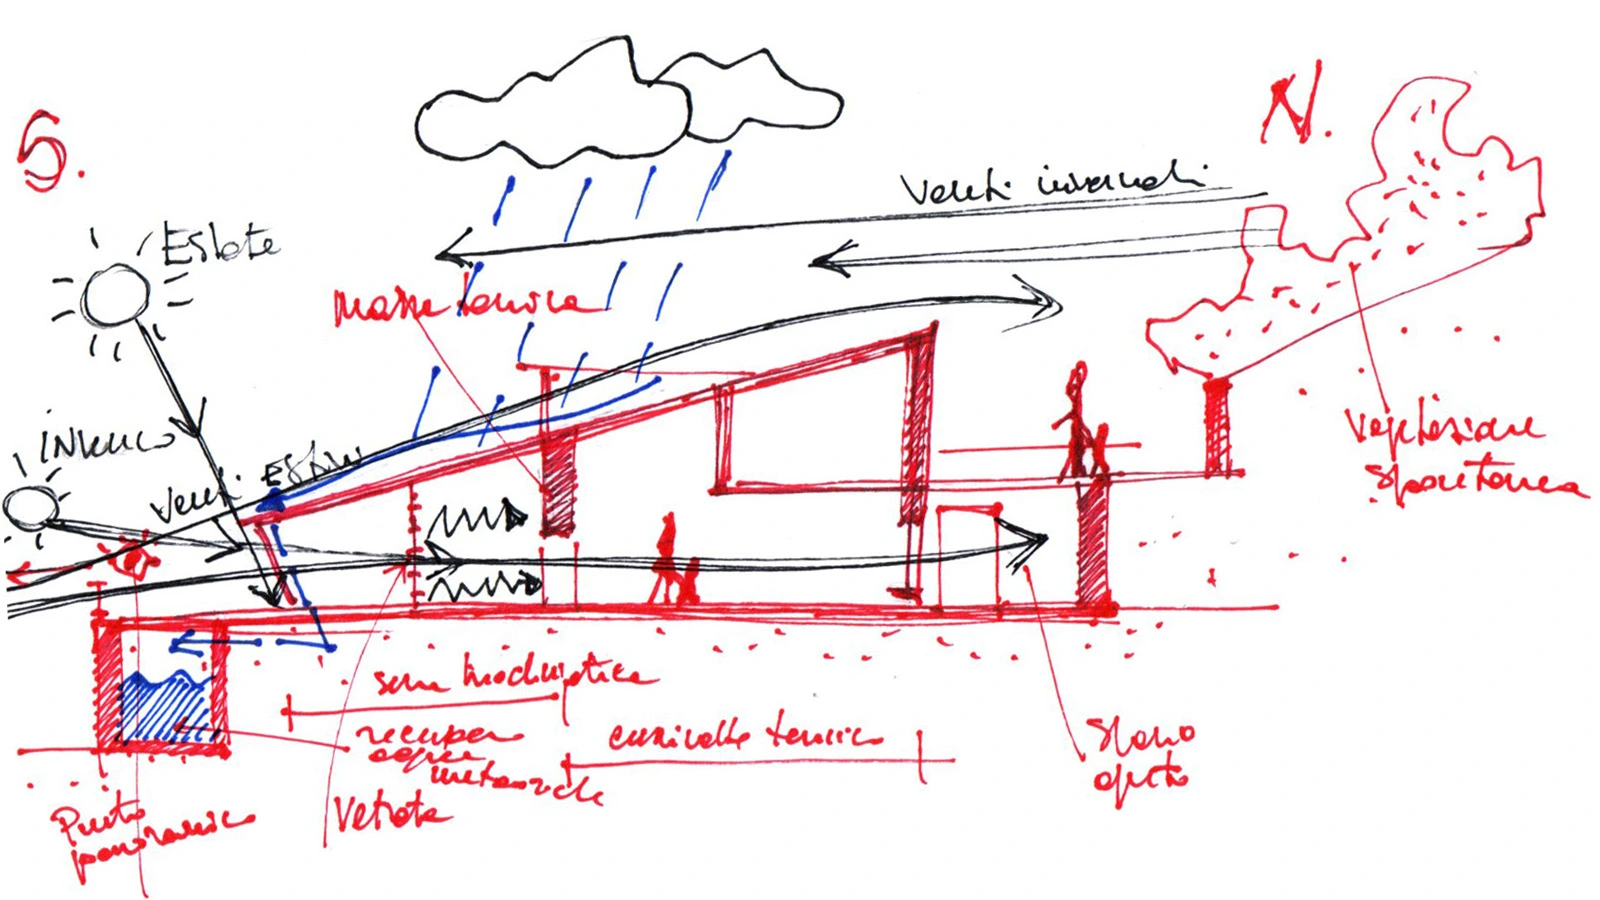 S.
N.
Venti invernali
Estate
Massa termica
Inverno
Venti Estivi
Vegetazione
Spontanea
serra bioclimatica
recupero
acque
meteoriche
cuscinetto termico
Spazio
aperto
Vetrata
Punto
panoramico